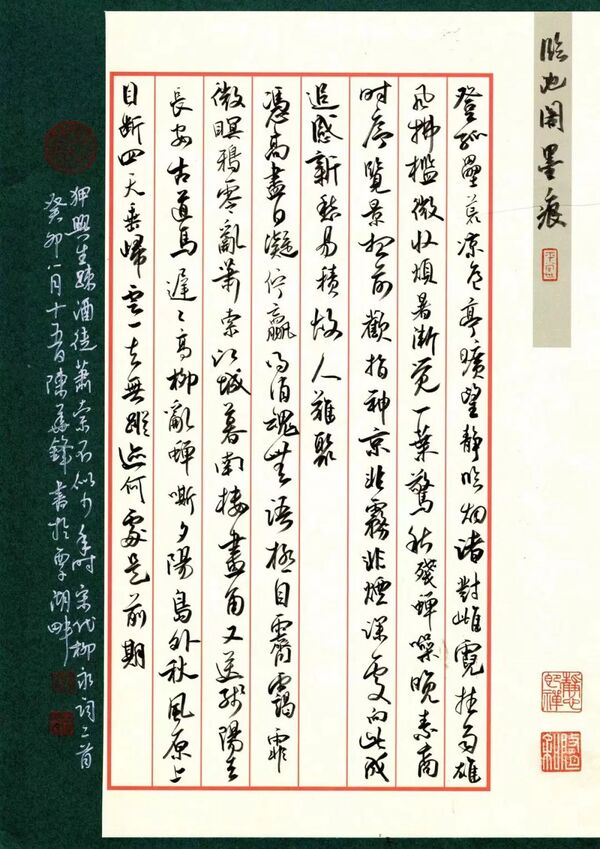 臨池阁墨痕
登孤壘荒凉危亭曠望靜临烟渚對雌霓挂雨雄
風拂檻微收煩暑漸覺一葉驚秋殘蟬噪晚素商
时序覽景想前歡指神京非霧非煙深處向此成
追感新愁易積故人難聚
憑高盡日凝佇贏得消魂無語極目霽靄霏
微暝鴉零亂蕭索江城暮南樓畫角又送殘陽去
長安古道馬遲〻高柳亂蟬嘶夕陽鳥外秋風原上
目断四天垂歸雲一去無蹤迹何處是前期
狎興生踈酒徒蕭索不似少年时宋代柳永詞二首
癸卯月十五日陳鋒書於湖畔